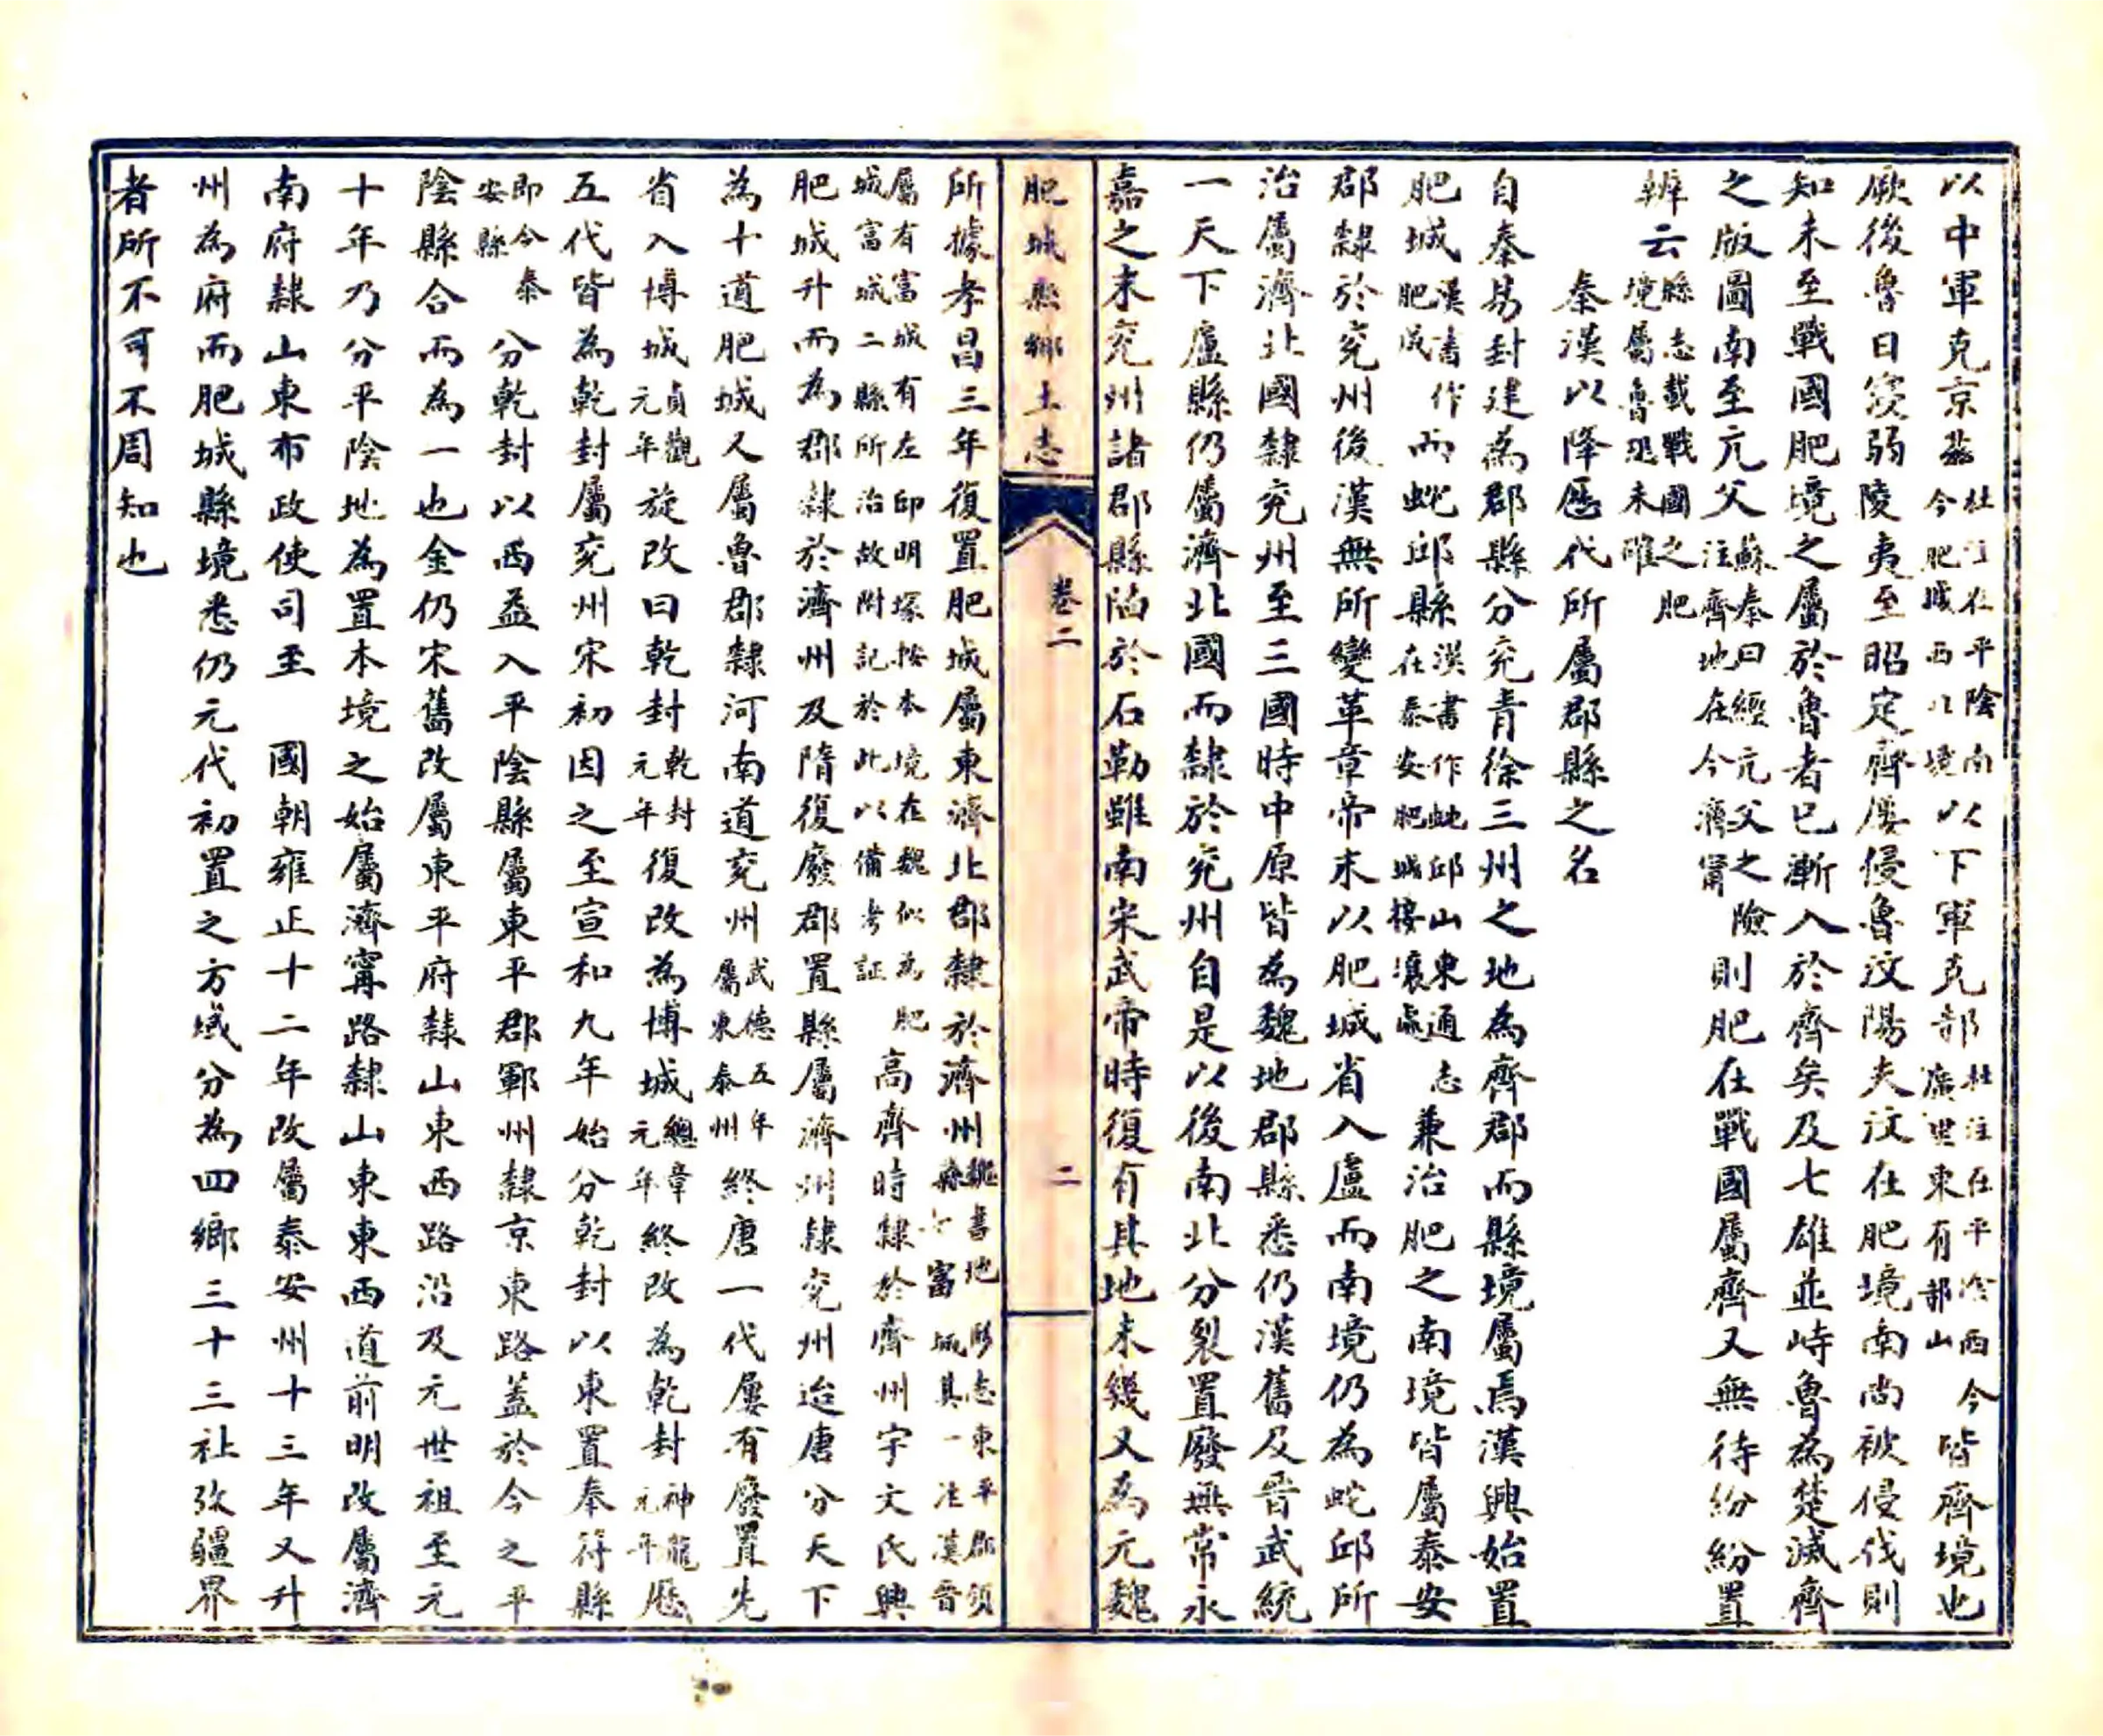 以中軍克京茲杜注在平陰南今肥城西北境以下軍克邿杜注在平陰西今廣里東有邿山皆齊境也
厥後魯日寖弱陵夷至昭定齊屢侵魯汶陽夫汶在肥境南尚被侵伐則
知未至戰國肥境之屬於魯者已漸入於齊矣及七雄並峙魯為楚滅齊
之版圖南至亢父蘇秦曰經亢父之險注齊地在今濟甯則肥在戰國屬齊又無待紛紛置
辨云縣志載戰國之肥境屬魯恐未確
秦漢以降歷代所屬郡縣之名
自秦易封建為郡縣分兗青徐三州之地為齊郡而縣境屬焉漢興始置
肥城漢書作肥成而蛇邱縣漢書作虵邱山東通志在泰安肥城接壤處兼治肥之南境皆屬泰安
郡隸於兗州後漢無所變革章帝末以肥城省入盧而南境仍為蛇邱所
治屬濟北國隸兗州至三國時中原皆為魏地郡縣悉仍漢舊及晉武統
一天下盧縣仍屬濟北國而隸於兗州自是以後南北分裂置廢無常永
嘉之末兗州諸郡縣陷於石勒雖南宋武帝時復有其地未幾又為元魏
肥城縣鄉土志
卷二
二
所據孝昌三年復置肥城屬東濟北郡隸於濟州魏書地形志東平郡領縣七富城其一注漢晉
屬有富城有左印明塚按本境在魏似為肥城富城二縣所治故附記於此以備考証高齊時隸於齊州宇文氏興
肥城升而為郡隸於濟州及隋復廢郡置縣屬濟州隸兗州迨唐分天下
為十道肥城入屬魯郡隸河南道兗州武德五年屬東泰州終唐一代屢有廢置先
省入博城貞觀元年旋改曰乾封乾封元年復改為博城總章元年終改為乾封神龍元年歷
五代皆為乾封屬兗州宋初因之至宣和九年始分乾封以東置奉符縣
即今泰安縣分乾封以西益入平陰縣屬東平郡鄆州隸京東路蓋於今之平
陰縣合而為一也金仍宋舊改屬東平府隸山東西路沿及元世祖至元
十年乃分平陰地為置本境之始屬濟甯路隸山東東西道前明改屬濟
南府隸山東布政使司至 國朝雍正十二年改屬泰安州十三年又升
州為府而肥城縣境悉仍元代初置之方域分為四鄉三十三社效疆界
者所不可不周知也